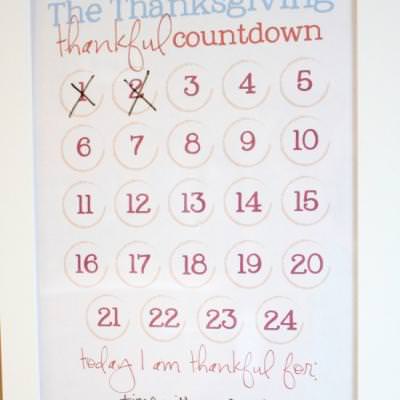 The Thanksgiving
thankful countdown
1 2 3 4 5
6 7 8 9 10
11 12 13 14 15
16 17 18 19 20
21 22 23 24
today I am thankful for: